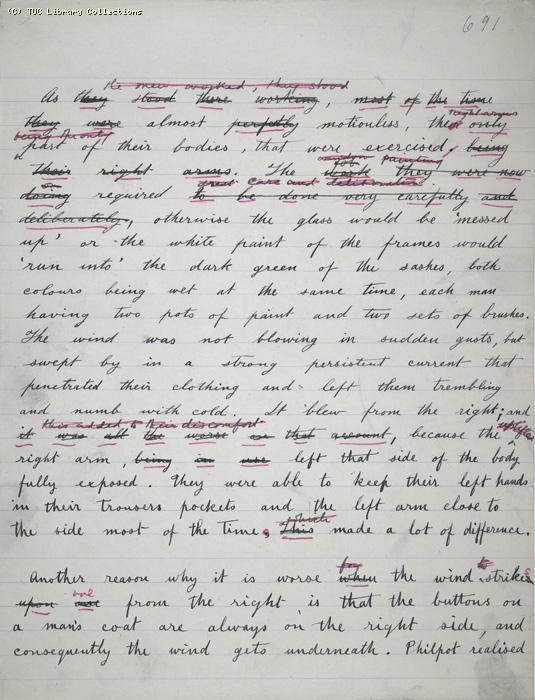 (c) TUC Library Collections
691
The men worked, they stood
As they stood there working, most of the time
right arms
They were almost perfectly motionless, their only
being the only
part of their bodies, that were exercised, being
window painting
job,
their right arms. The work they were now
on great care and deliberation.
doing required to be done very carefully and
deliberately, otherwise the glass would be 'messed
up' or the white paint of the frames would
'run into' the dark green of the sashes, both
colours being wet at the same time, each man
having two pots of paint and two sets of brushes.
The wind was not blowing in sudden gusts, but
swept by in a strong persistent current that
penetrated their clothing and left them trembling
and numb with cold. It blew from the right; and
this added to their discomfort uplifted
it was all the worse on that account, because the
right arm, being in use left that side of the body
fully exposed. They were able to keep their left hands
in their trousers pockets and the left arm close to
the side most of the time, This made a lot of difference.
for to
Another reason why it is worse when the wind strikes
upon one from the right is that the buttons on
a man's coat are always on the right side, and
consequently the wind gets underneath. Philpot realised